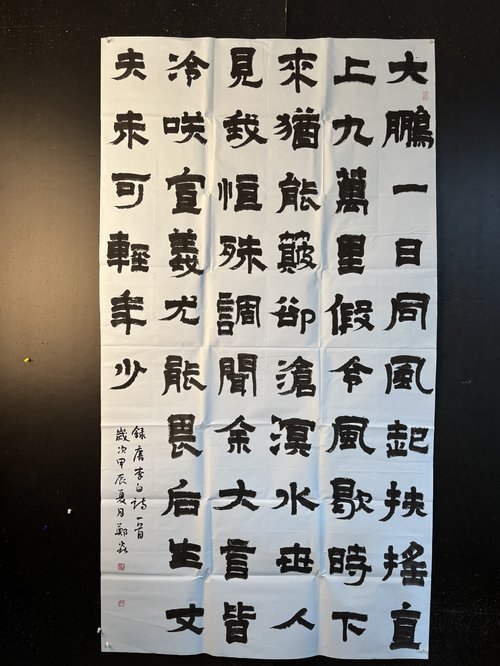 大鵬一日同風起扶搖直
上九萬里假令風歇時下
來猶能簸卻滄溟水世人
見我恒殊調聞余大言皆
冷咲宣義尤能畏后生丈
夫未可輕年少
錄唐李白詩一首
歲次甲辰夏月鄭